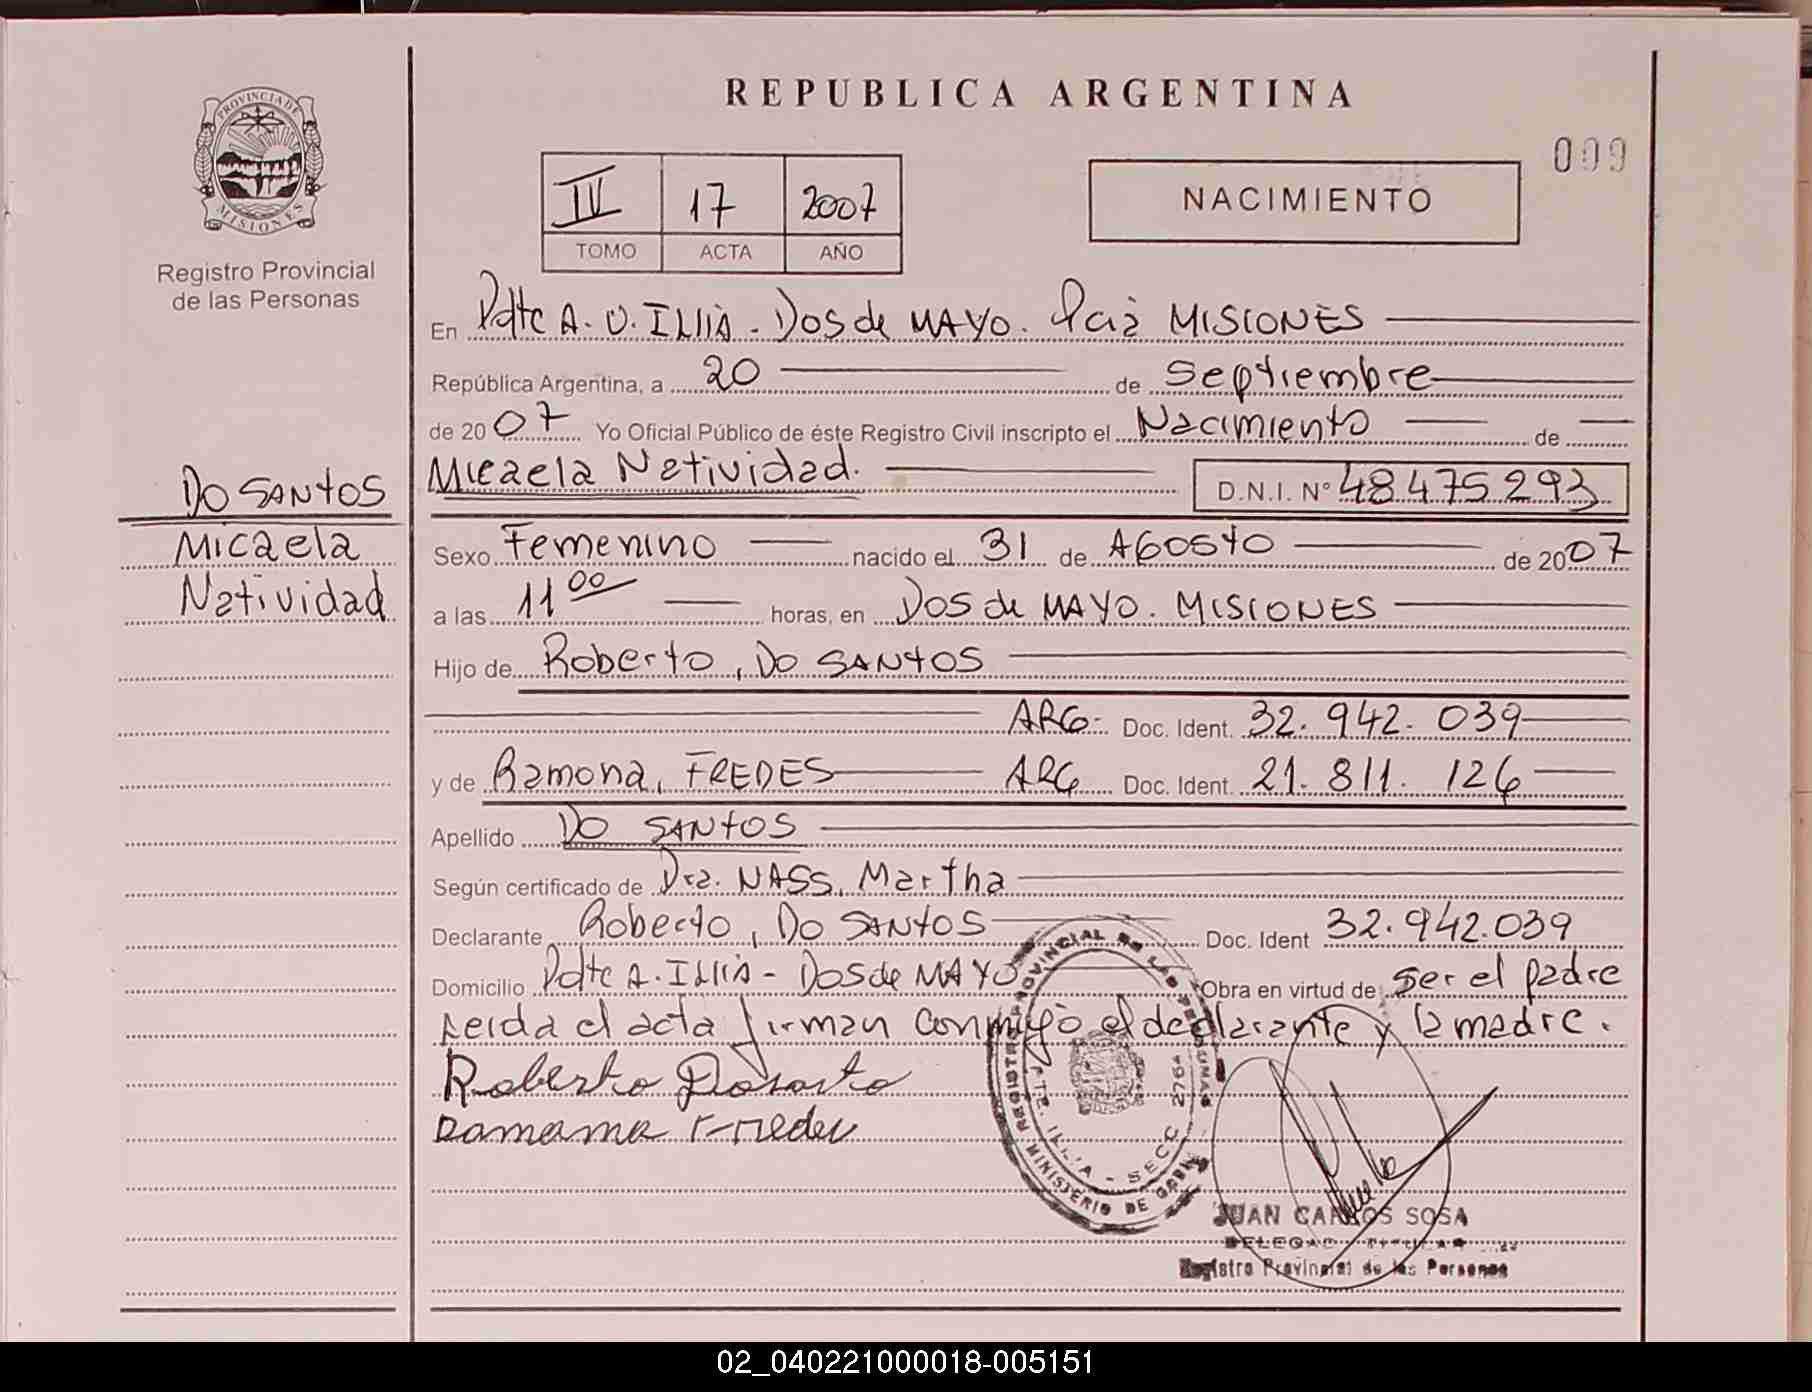 REPUBLICA ARGENTINA
009
PROVINCIA DE MISIONES
Registro Provincial
de las Personas
IV 17 2007
TOMO ACTA AÑO
NACIMIENTO
En Pdte A. U. ILLIA - DOS de MAYO. Pcia MISIONES
República Argentina, a 20 de Septiembre
de 2007 Yo Oficial Público de éste Registro Civil inscripto el Nacimiento de
Micaela Natividad. D.N.I. Nº 48475293
DO SANTOS
Micaela
Natividad
Sexo Femenino nacido el 31 de AGOSTO de 2007
a las 11 00 horas, en DOS de MAYO. MISIONES
Hijo de Roberto, DO SANTOS
ARG- Doc. Ident. 32.942.039
y de Ramona, FREDES ARG Doc. Ident. 21.811.126
Apellido DO SANTOS
Según certificado de Dra. NASS, Martha
Declarante Roberto, DO SANTOS Doc. Ident 32.942.039
Domicilio Pdte A. ILLIA - DOS de MAYO Obra en virtud de Ser el padre
Leida el acta firman conmigo el declarante y la madre.
Roberto
REGISTRO PROVINCIAL DE LAS PERSONAS
MINISTERIO DE
PTE. ILLIA - SECC 2764
JUAN CARLOS SOSA
DELEGADO TITULAR
Registro Provincial de las Personas
02_040221000018-005151